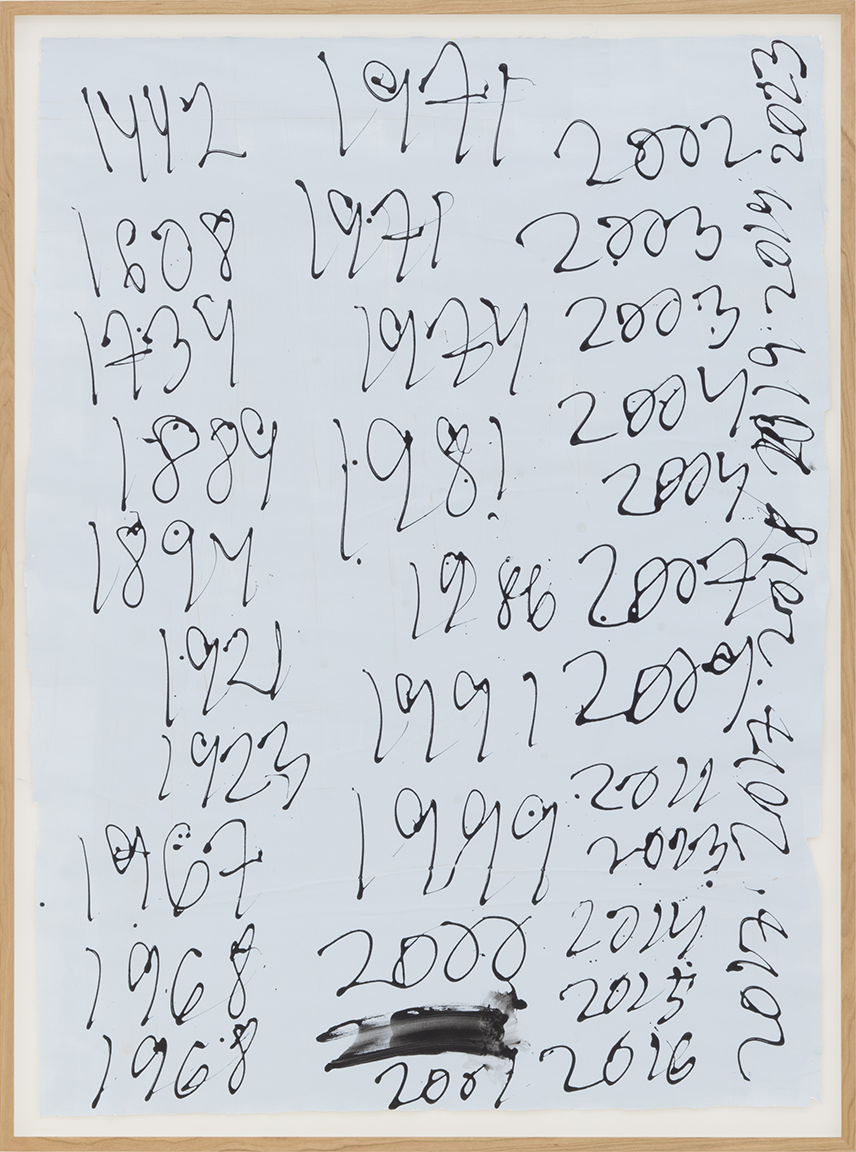 1442
1808
1739
1889
1894
1921
1923
1967
1968
1968
1971
1971
1974
1981
1986
1991
1999
2000
2001
2002
2003
2003
2004
2004
2007
2009
2011
2013
2014
2015
2016
2017. 2017. 2018 2019. 2019 2023